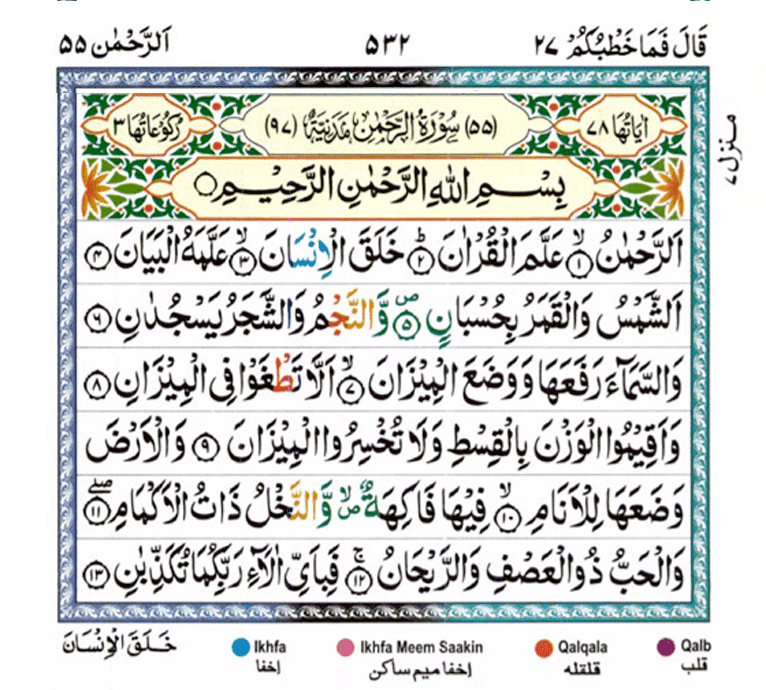 قَالَ فَمَا خَطْبُكُمْ ٢٧ ٥٣٢ اَلرَّحْمٰن ٥٥
اٰيَاتُهَا ٧٨ (٥٥) سُوْرَةُ الرَّحْمٰنِ مَدَنِيَّةٌ (٩٧) رُكُوْعَاتُهَا ٣
منزل ٧
بِسْمِ اللهِ الرَّحْمٰنِ الرَّحِيْمِ
اَلرَّحْمٰنُ ۙ‏﴿١﴾ عَلَّمَ الْقُرْاٰنَ ؕ‏﴿٢﴾ خَلَقَ الْاِنْسَانَ ۙ‏﴿٣﴾ عَلَّمَهُ الْبَيَانَ ﴿٤﴾
اَلشَّمْسُ وَالْقَمَرُ بِحُسْبَانٍ ۪‏﴿٥﴾ وَّالنَّجْمُ وَالشَّجَرُ يَسْجُدٰنِ ﴿٦﴾
وَالسَّمَآءَ رَفَعَهَا وَوَضَعَ الْمِيْزَانَ ۙ‏﴿٧﴾ اَلَّا تَطْغَوْا فِى الْمِيْزَانِ ﴿٨﴾
وَاَقِيْمُوا الْوَزْنَ بِالْقِسْطِ وَلَا تُخْسِرُوا الْمِيْزَانَ ﴿٩﴾ وَالْاَرْضَ
وَضَعَهَا لِلْاَنَامِ ۙ‏﴿١٠﴾ فِيْهَا فَاكِهَةٌ ۪ۙ وَّالنَّخْلُ ذَاتُ الْاَكْمَامِ ۖ‏﴿١١﴾
وَالْحَبُّ ذُو الْعَصْفِ وَالرَّيْحَانُ ۚ‏﴿١٢﴾ فَبِاَىِّ اٰلَآءِ رَبِّكُمَا تُكَذِّبٰنِ ﴿١٣﴾
خَلَقَ الْاِنْسَانَ
Ikhfa Ikhfa Meem Saakin Qalqala Qalb
إخفا إخفا ميم ساكن قلقله قلب